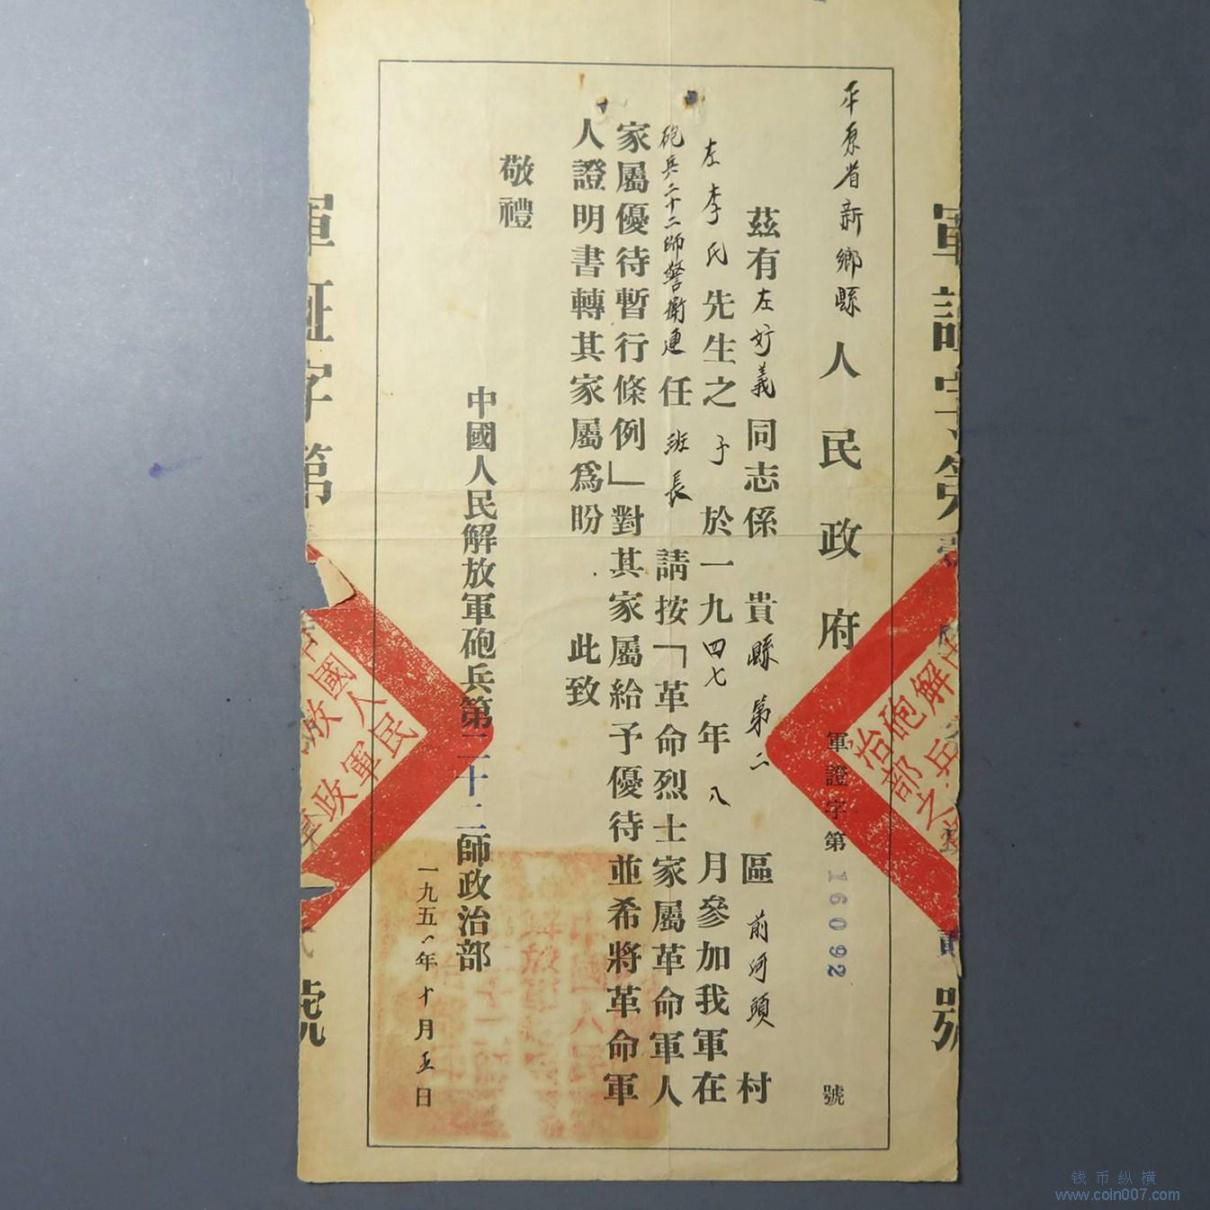 平原省新鄉縣人民政府
軍證字第16092號
茲有左好義同志係貴縣第二區前河頭村
左李氏先生之子於一九四七年八月參加我軍在
砲兵二十二師警衛連任班長請按「革命烈士家屬革命軍人
家屬優待暫行條例」對其家屬給予優待並希將革命軍
人證明書轉其家屬為盼.此致
敬禮
中國人民解放軍砲兵第二十二師政治部
一九五一年十月五日
軍證字第
號
軍證字第
號
錢币纵横
www.coin007.com